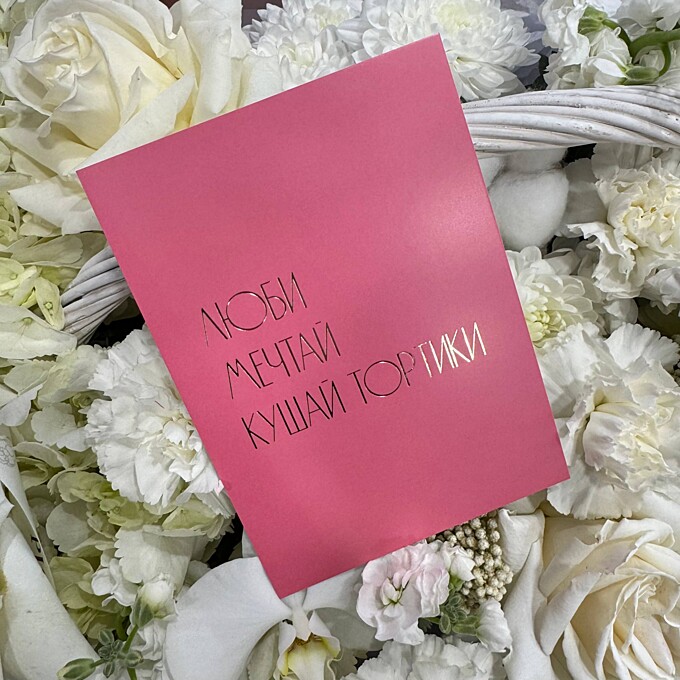 ЛЮБИ
МЕЧТАЙ
КУШАЙ ТОРТИКИ